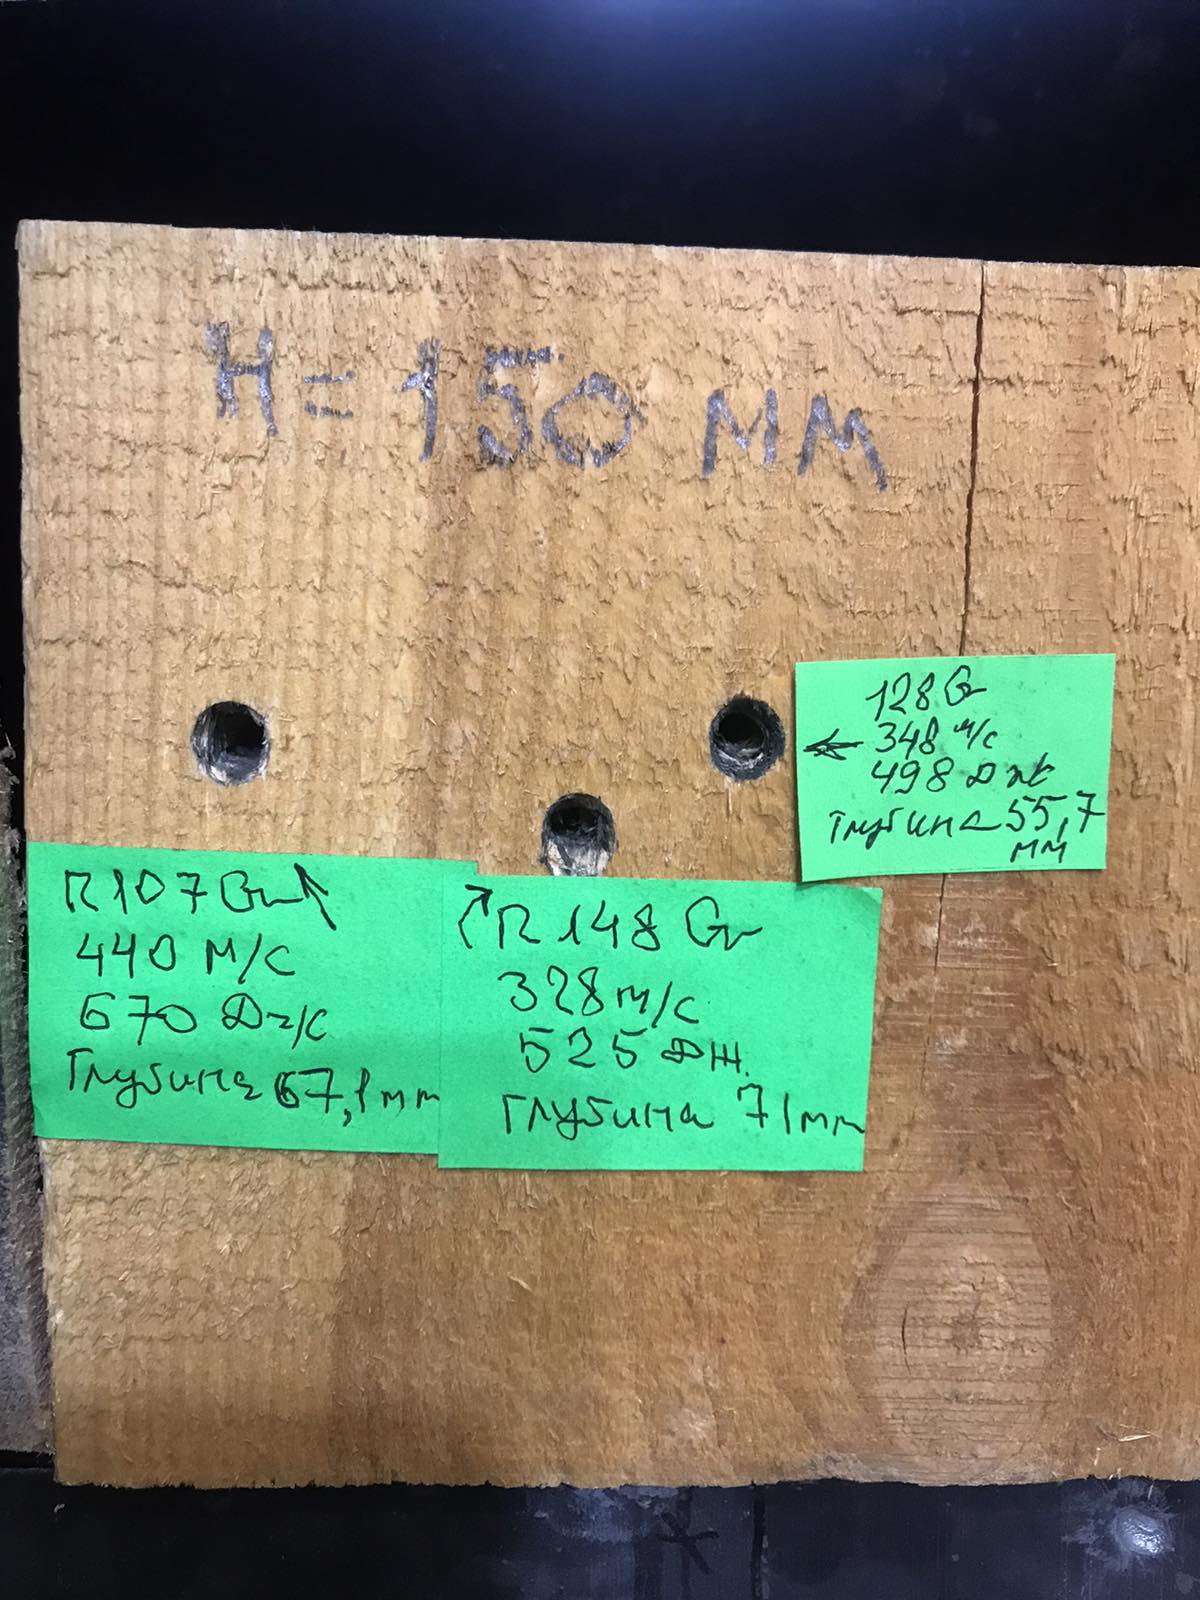 H = 150 мм
128 Gr
348 м/с
498 Дж
глубина 55,7
мм
R 107 Gr
440 м/с
670 Дж
Глубина 67,1 мм
R 148 Gr
328 м/с
525 Дж.
глубина 71 мм